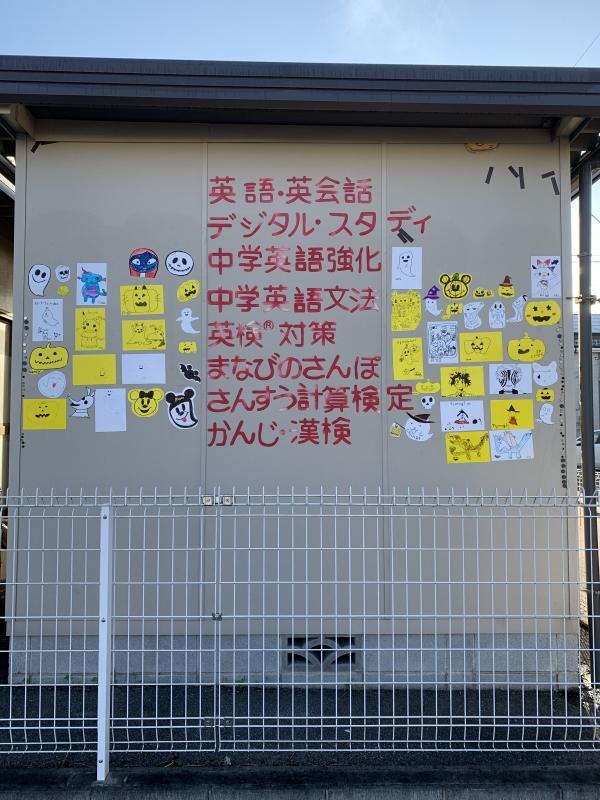 英語・英会話
デジタル・スタディ
中学英語強化
中学英語文法
英検®対策
まなびのさんぽ
さんすう計算検定
かんじ・漢検